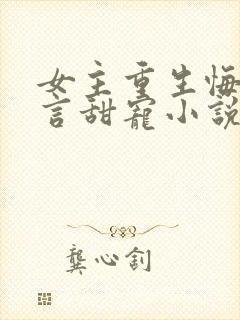 女主重生悔
言甜寵小說
龔心釗